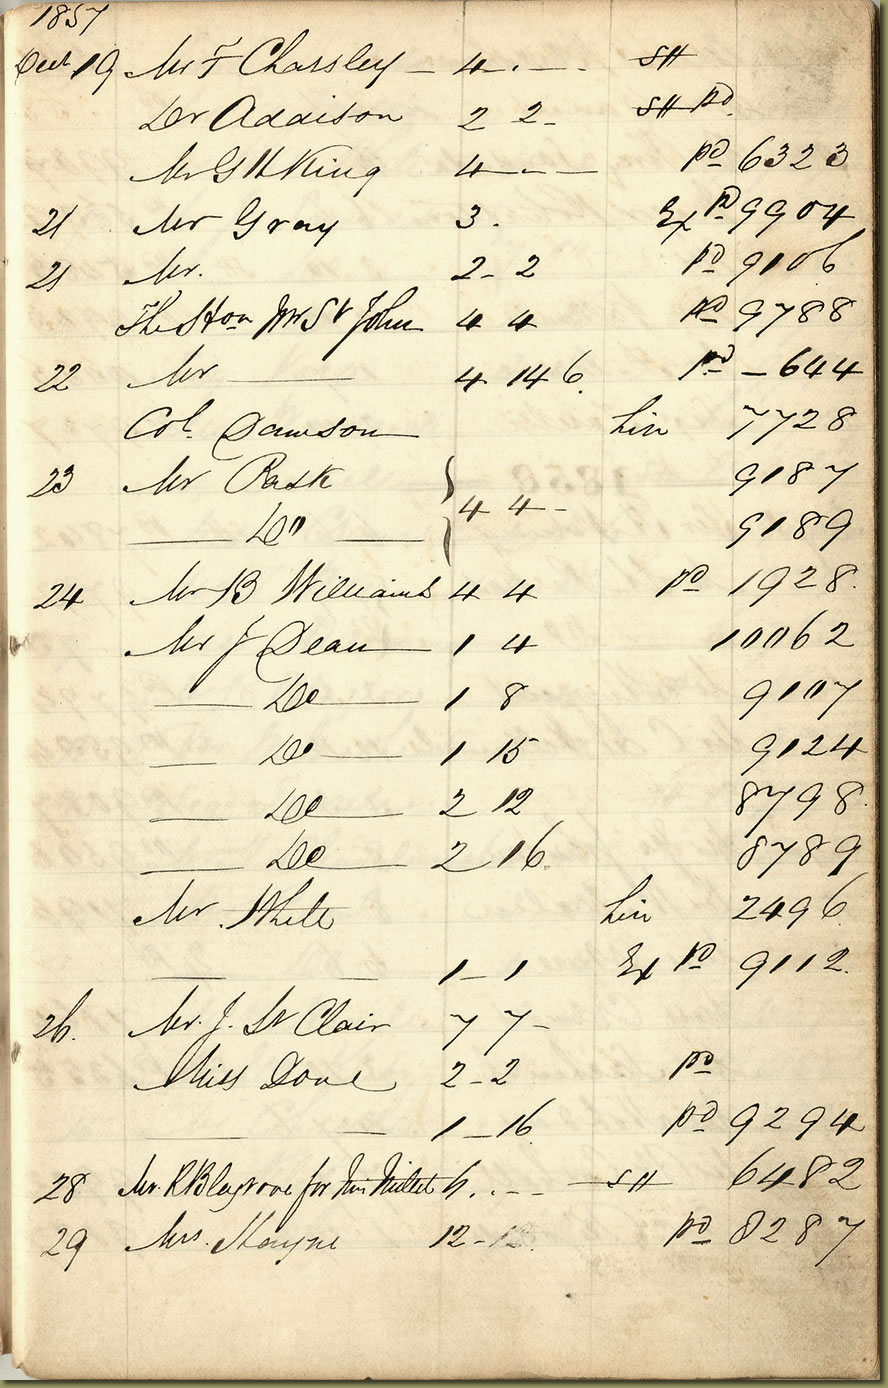 1857
Oct 19 Mr F Charsley — 4 . — . SH
Dr Addison 2 2 - SH pd.
Mr G H King 4 - — — pd 6323
21 Mr Gray 3 . Ex pd 9904
21 Mr. 2 - 2 pd 9106
The Hon Mr St John 4 4 pd 9788
22 Mr —— 4 14 6. pd - 644
Col. Dawson — Lin 7728
23 Mr Pask 9187
—— Do —— } 4 4 - 9189
24 Mr B Williams 4 4 pd 1928.
Mr J Dean — 1 4 10062
—— Do —— 1 8 9107
— Do —— 1 15 9124
—— Do —— 2 12 8798.
—— Do —— 2 16. 8789
Mr. White Lin 2496
—— —— 1 - 1 Ex pd 9112.
26. Mr. J. St Clair 7 7 -
Miss Dove 2 - 2 pd
—— — 1 - 16. pd 9294
28 Mr. R Blagrove for Miss 6 . - — — SH 6482
29 Mrs. Hayne 12 - 12. pd 8287